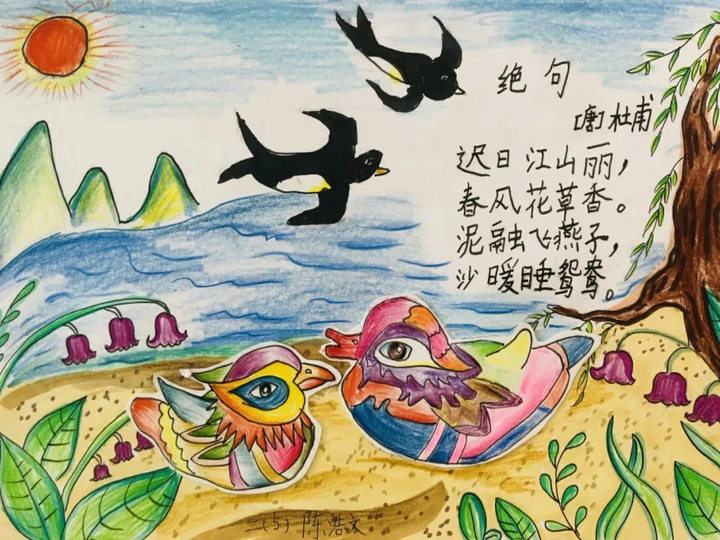 绝句
[唐]杜甫
迟日江山丽，
春风花草香。
泥融飞燕子，
沙暖睡鸳鸯。
三(5) 陈浩文